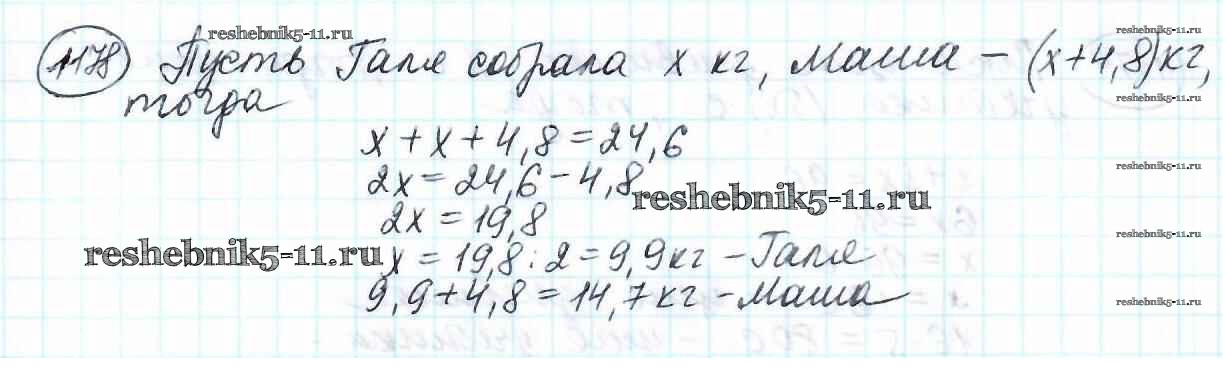 reshebnik5-11.ru
reshebnik5-11.ru
1178 Пусть Галя собрала x кг, Маша – (x+4,8) кг,
reshebnik5-11.ru
тогда
x + x + 4,8 = 24,6
reshebnik5-11.ru
2x = 24,6 – 4,8
reshebnik5-11.ru
2x = 19,8
reshebnik5-11.ru
reshebnik5-11.ru
x = 19,8 : 2 = 9,9 кг – Галя
9,9 + 4,8 = 14,7 кг – Маша
reshebnik5-11.ru